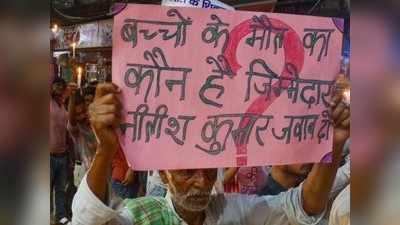 बच्चों के मौत का
कौन है जिम्मेदार
नीतीश कुमार जवाब दो
?